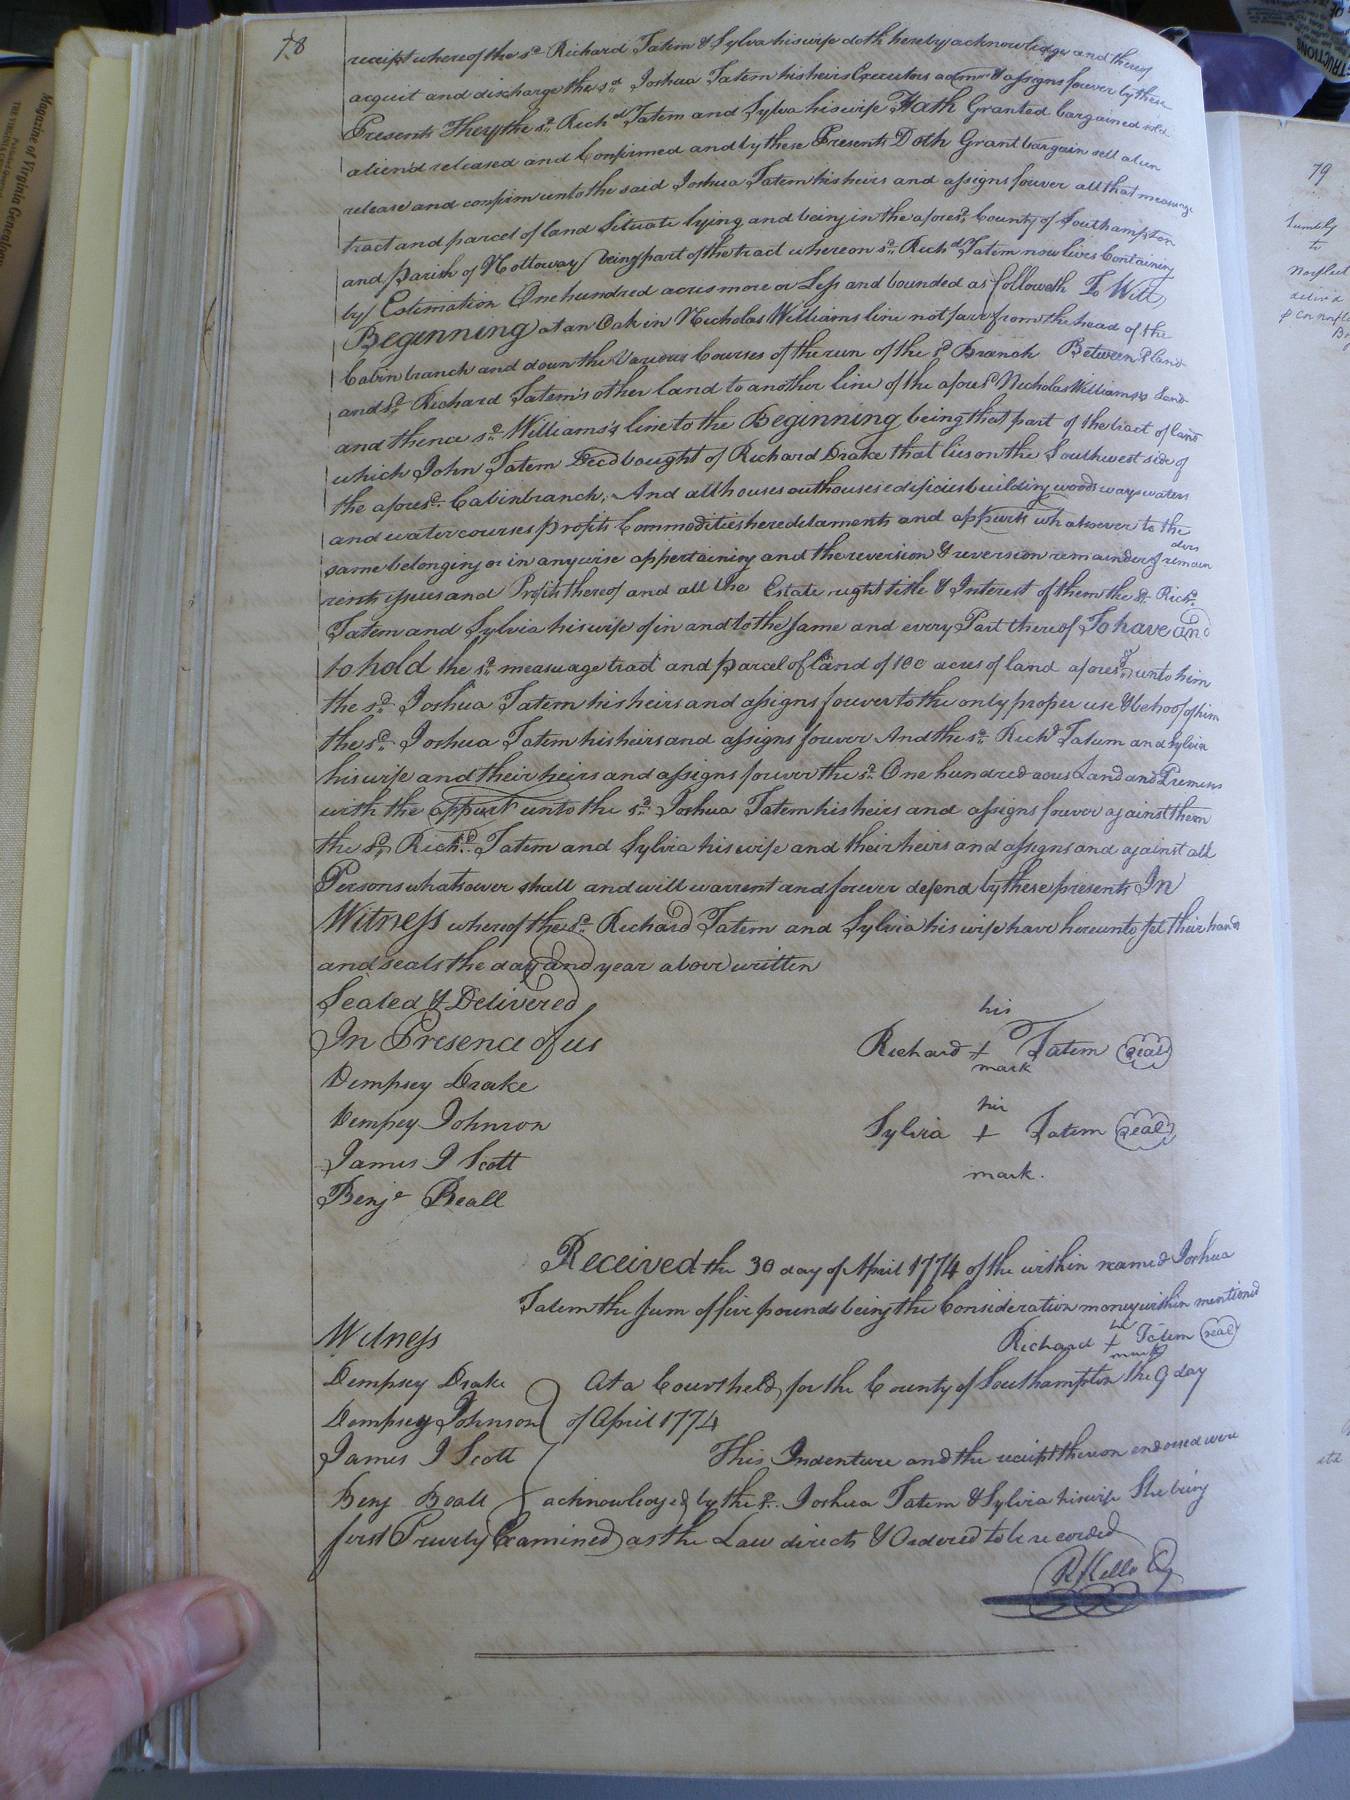 78
receipt whereof the sd. Richard Tatem & Sylva his wife doth hereby acknowledge and thereof
acquit and discharge the sd. Joshua Tatem his heirs Executors admrs & assigns forever by these
Presents They the sd. Richd Tatem and Sylva his wife Hath Granted bargained sold
aliend released and Confirmed and by these Presents Doth Grant bargain sell alien
release and confirm unto the said Joshua Tatem his heirs and assigns forever all that measuage
tract and parcel of land Situate lying and being in the aforesd. County of Southampton
and parish of Nottoway being part of the tract whereon sd. Richd Tatem now lives Containing
by Estimation One hundred acres more or Less and bounded as followeth To Witt
Beginning at an Oak in Nicholas Williams line not farr from the head of the
Cabin branch and down the Various Courses of the run of the sd Branch Between sd land
and sd. Richard Tatem's other land to another line of the aforesd Nicholas Williams's Land
and thence sd. Williams's line to the Beginning being that part of the tract of land
which John Tatem Decd bought of Richard Drake that lies on the Southwest side of
the aforesd. Cabin branch, And all houses outhouses edificies building woods ways waters
and water courses profits Commodities hereditaments and appurts whatsoever to the
same belonging or in anywise appertaining and the reversion & reversion remainder & remain
ders
rents issues and Profits thereof and all the Estate right title & Interest of them the sd. Richd.
Tatem and Sylvia his wife of in and to the same and every Part thereof To have and
to hold the sd. measuage tract and parcel of land of 100 acres of land aforesd. unto him
the sd. Joshua Tatem his heirs and assigns forever to the only proper use & behoof of him
the sd. Joshua Tatem his heirs and assigns forever And the sd. Richd Tatum and Sylvia
his wife and their heirs and assigns forever the sd. One hundred acres Land and Premises
with the appurts unto the sd. Joshua Tatem his heirs and assigns forever against them
the sd. Richd. Tatem and Sylvia his wife and their heirs and assigns and against all
Persons whatsoever shall and will warrent and forever defend by these presents In
Witness whereof the sd. Richard Tatem and Sylvia his wife have hereunto set their hands
and seals the day and year above written
Sealed & Delivered
In Presence of us
his
Richard + Tatem seal
mark
Dempsey Drake
Dempsey Johnson
his
Sylvia + Tatem seal
mark.
James I Scott
Benja Beall
Received the 30 day of April 1774 of the within named Joshua
Tatem the sum of five pounds being the Consideration money within mentioned
Witness
his
Richard + Tatem seal
mark
Dempsey Drake
At a Court held for the County of Southampton the 9 day
Dempsey Johnson
of April 1774
James I Scott
This Indenture and the receipt thereon endorsed were
Benj Beall
acknowledged by the sd. Joshua Tatem & Sylvia his wife She being
first Privily Examined as the Law directs & Ordered to be recorded
R Kello
79
Magazine of Virginia Genealogy